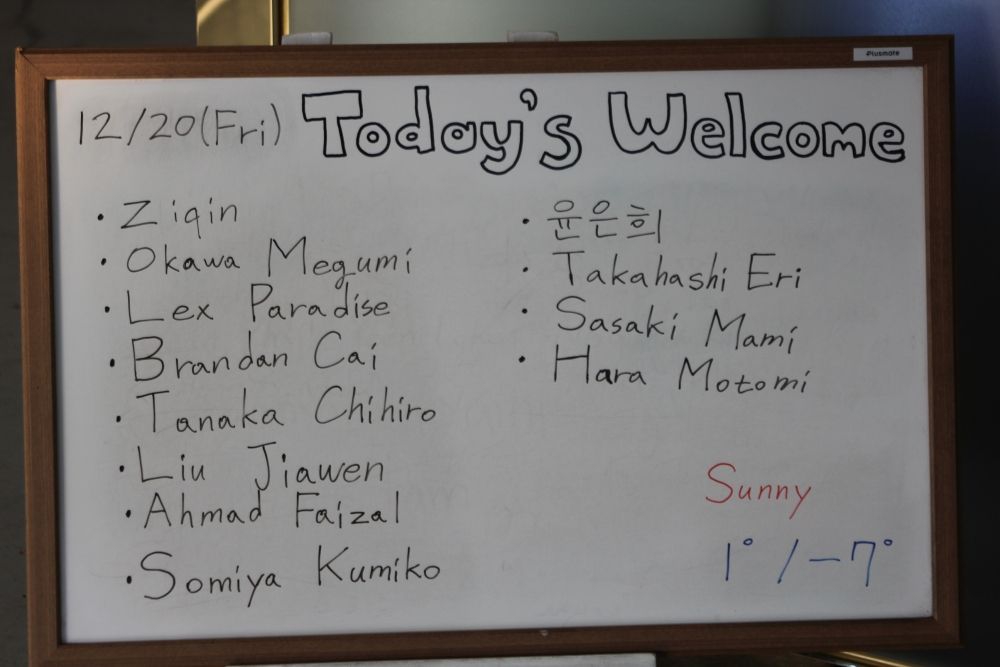 Plusmate
12/20(Fri) Today's Welcome
· Ziqin
· Okawa Megumi
· Lex Paradise
· Brandan Cai
· Tanaka Chihiro
· Liu Jiawen
· Ahmad Faizal
· Somiya Kumiko
· 윤은희
· Takahashi Eri
· Sasaki Mami
· Hara Motomi
Sunny
1° / -7°